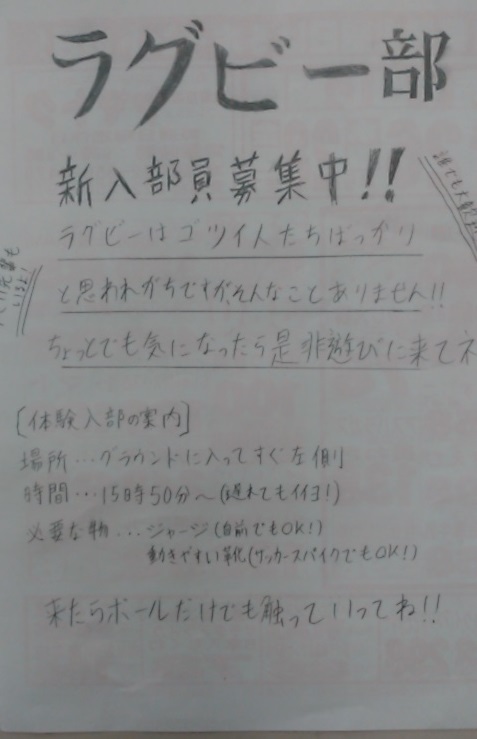 ラグビー部
新入部員募集中!!
ラグビーはゴツイ人たちばっかり
と思われがちですが、そんなことありません!!
ちょっとでも気になったら是非遊びに来てネ
[体験入部の案内]
場所…グラウンドに入ってすぐ左側
時間…15時50分〜(遅れてもイイヨ!)
必要な物…ジャージ(自前でもOK!)
動きやすい靴(サッカースパイクでもOK!)
来たらボールだけでも触っていってね!!